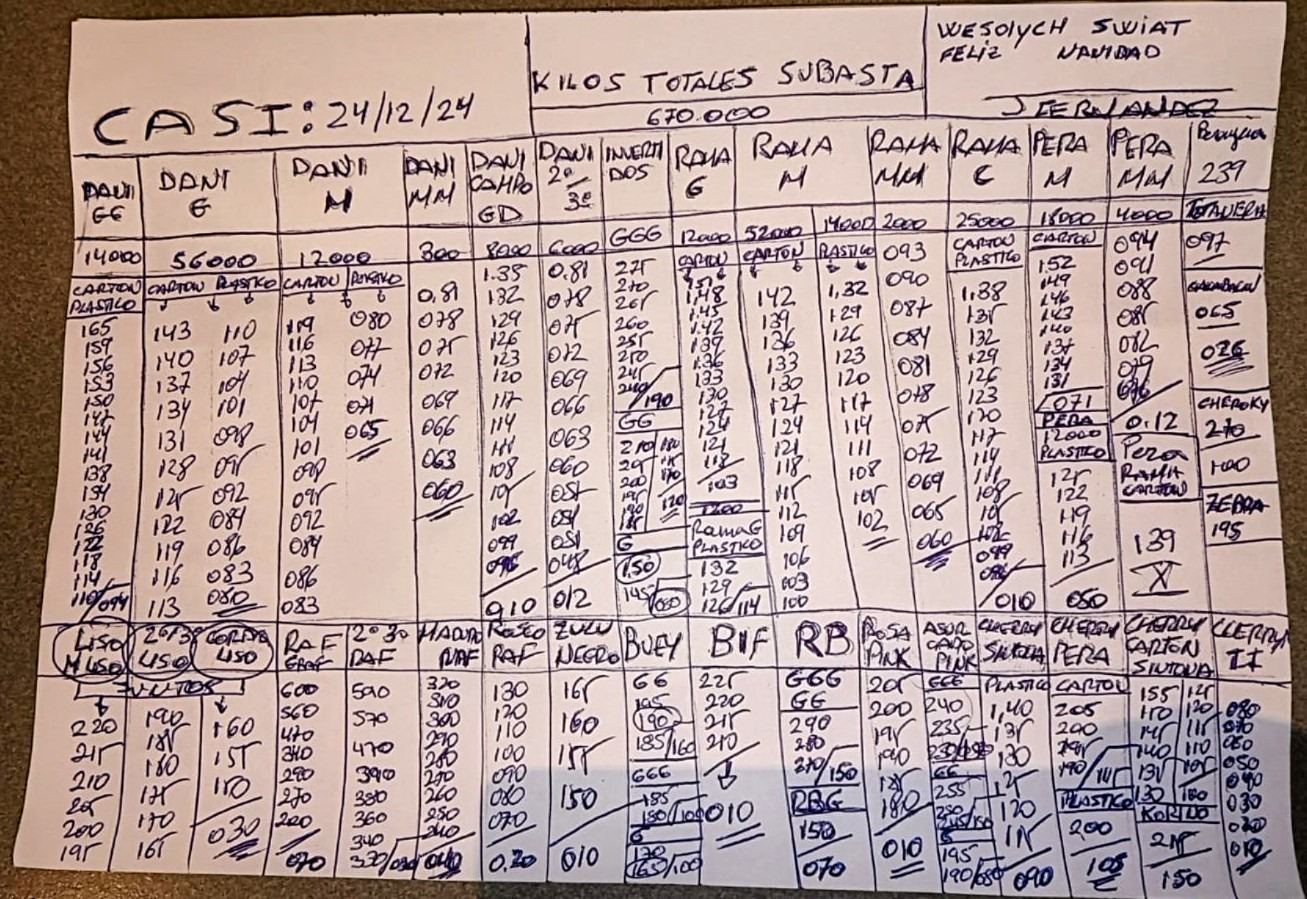 CASI: 24/12/24
KILOS TOTALES SUBASTA
670.000
WESOlYCH SWIAT
FELIZ NAVIDAD
J FERNANDEZ
DANI GG
14000
CARTON
PLASTICO
165
159
156
153
150
147
144
141
138
134
130
126
122
118
114
110/094
DANI G
56000
CARTON PLASTICO
143 110
140 107
137 104
134 101
131 098
128 095
125 092
122 089
119 086
116 083
113 080
DANI M
12000
CARTON PLASTICO
119 080
116 077
113 074
110 071
107 065
104
101
098
095
092
089
086
083
DANI MM
300
0.81
078
075
072
069
066
063
060
DANI CAMPO GD
8000
1.35
132
129
126
123
120
117
114
111
108
105
102
099
096
010
DANI 2ª/3ª
6000
0.81
078
075
072
069
066
063
060
057
054
051
048
012
INVERTIDOS
GGG
275
270
265
260
255
250
245
240/190
GG
210 180
205 175
200 170
195
190 120
185
G
1.50
145/080
RAMA G
12000
CARTON
1.51
1.48
1.45
1.42
139
136
133
130
127
124
121
118
103
1200
Rama G
PLASTICO
132
129
126/114
RAMA M
52000 14000
CARTON PLASTICO
142 1.32
139 129
136 126
133 123
130 120
127 117
124 114
121 111
118 108
115 105
112 102
109
106
103
100
RAMA MM
2000
093
090
087
084
081
078
075
072
069
065
060
RAMA C
25000
CARTON
PLASTICO
1.38
135
132
129
126
123
120
117
114
111
108
105
102
099
096
010
PERA M
18000
CARTON
1.52
149
146
143
140
137
134
131
071
PERA
12000
PLASTICO
125
122
119
116
113
050
PERA MM
4000
094
091
088
085
082
079
076
0.12
Pera
RAMA
CARTON
139
X
239
097
065
026
CHEROKY
270
100
ZEBRA
195
LISO
M LISO
2ª/3ª
LISO
LISO
220 190 160
215 185 155
210 180 150
205 175 030
200 170
195 165
RAF
GRAF
600
560
470
340
290
270
200
070
2ª 3ª
RAF
590
570
470
390
380
360
340
MADURO
RAF
320
310
300
290
280
270
260
250
240
040
ROSCO
RAF
130
120
110
100
090
080
070
0.20
ZULU
NEGRO
165
160
155
150
010
BUEY
GG
195
190
185/160
GGG
185
180/100
G
170
165/100
BIF
225
220
215
210
010
RB
GGG
GG
290
280
270/150
RBG
150
070
ROSA
PINK
205
200
195
190
185
180
010
PINK
GGG
240
235
GG
255
250
G
195
190/080
CHERRY
SINTONIA
PLASTICO
1,40
135
130
125
120
115
090
CHERRY
PERA
CARTON
205
200
195
190/145
PLASTICO
200
105
CHERRY
CARTON
SINTONIA
155 125
150 120
145 115
140 110
135 105
130 100
KORDO
215
150
CHERRY
II
080
070
060
050
040
030
020
010